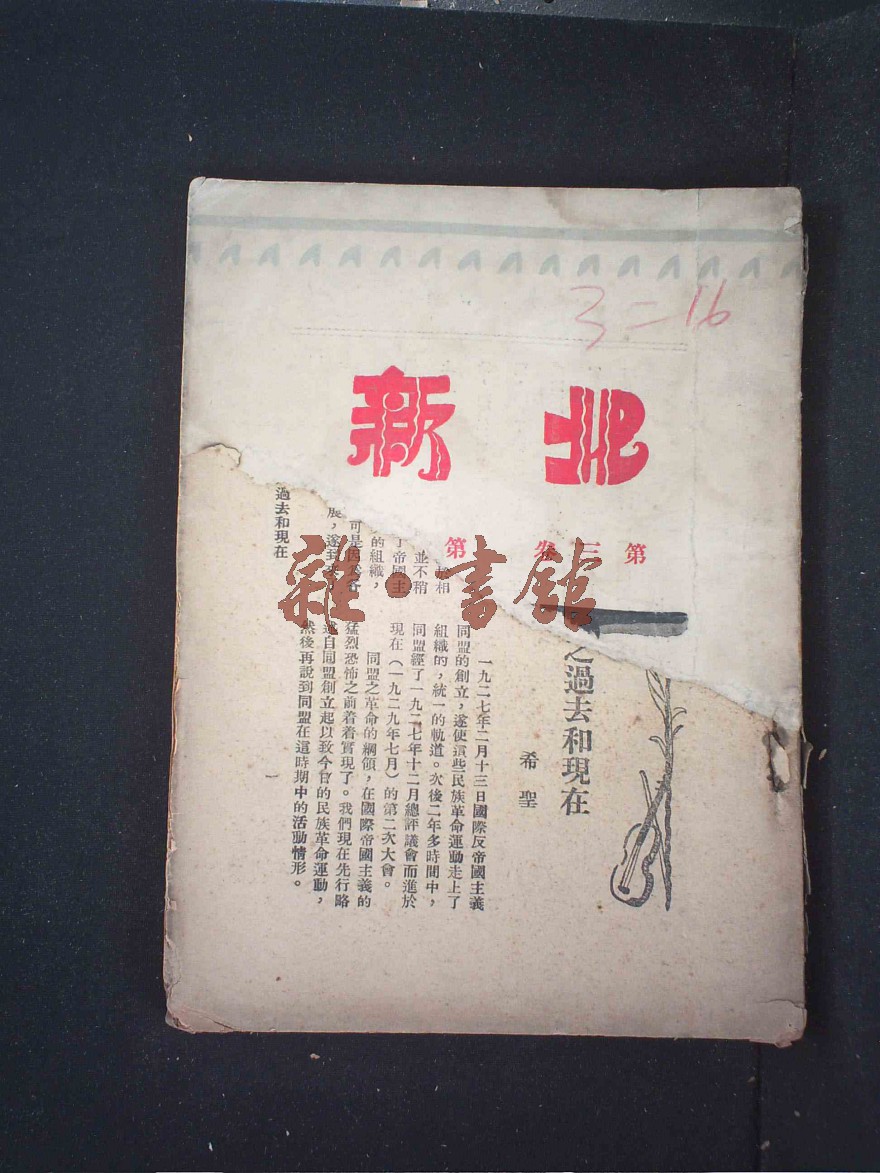 3=16
北新
第三卷 第
之過去和現在
希聖
一九二七年二月十三日國際反帝國主義
同盟的創立，遂使這些民族革命運動走上了
組織的，統一的軌道。次後二年多時間中，
同盟經了一九二七年十二月總評議會而進於
現在（一九二九年七月）的第二次大會。
同盟之革命的綱領，在國際帝國主義的
猛烈恐怖之前着着實現了。我們現在先行略
述自同盟創立起以致今日的民族革命運動，
然後再說到同盟在這時期中的活動情形。
相
並不稍
了帝國主
的組織，
可是因為各
展，遂到
過去和現在
一
雜·書館